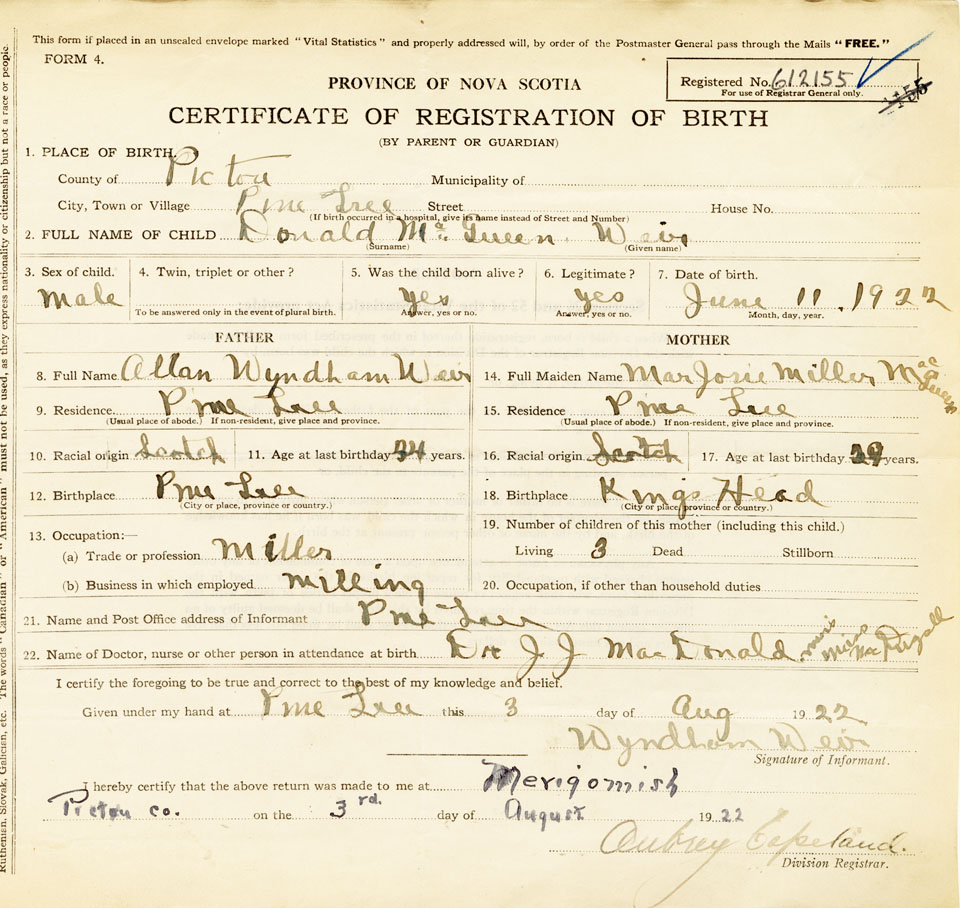 This form if placed in an unsealed envelope marked "Vital Statistics" and properly addressed will, by order of the Postmaster General pass through the Mails "FREE."
FORM 4.
Registered No. 612155
For use of Registrar General only.
PROVINCE OF NOVA SCOTIA
CERTIFICATE OF REGISTRATION OF BIRTH
(BY PARENT OR GUARDIAN)
1. PLACE OF BIRTH.
County of Pictou Municipality of
City, Town or Village Pine Tree Street House No.
(If birth occurred in a hospital, give its name instead of Street and Number)
2. FULL NAME OF CHILD Donald Mac Queen Weir
(Surname) (Given name)
3. Sex of child. 4. Twin, triplet or other? 5. Was the child born alive? 6. Legitimate? 7. Date of birth.
Male yes yes June 11, 1922
To be answered only in the event of plural birth. Answer, yes or no. Answer, yes or no. Month, day, year.
FATHER MOTHER
8. Full Name Allan Wyndham Weir 14. Full Maiden Name Marjorie Miller Mac Queen
9. Residence Pine Tree 15. Residence Pine Tree
(Usual place of abode.) If non-resident, give place and province. (Usual place of abode.) If non-resident, give place and province.
10. Racial origin Scotch 11. Age at last birthday 34 years. 16. Racial origin Scotch 17. Age at last birthday 29 years.
12. Birthplace Pine Tree 18. Birthplace Kings Head
(City or place, province or country.) (City or place, province or country.)
19. Number of children of this mother (including this child.)
13. Occupation:—
(a) Trade or profession Miller Living 3 Dead Stillborn
(b) Business in which employed milling 20. Occupation, if other than household duties
21. Name and Post Office address of Informant Pine Tree
22. Name of Doctor, nurse or other person in attendance at birth Dr J J MacDonald
I certify the foregoing to be true and correct to the best of my knowledge and belief.
Given under my hand at Pine Tree this 3 day of Aug 1922
Wyndham Weir
Signature of Informant.
I hereby certify that the above return was made to me at Merigomish
Pictou Co. on the 3rd. day of August 1922
Aubrey Copeland.
Division Registrar.
Ruthenian, Slovak, Galician, etc. The words "Canadian" or "American" must not be used, as they express nationality or citizenship but not a race or people.